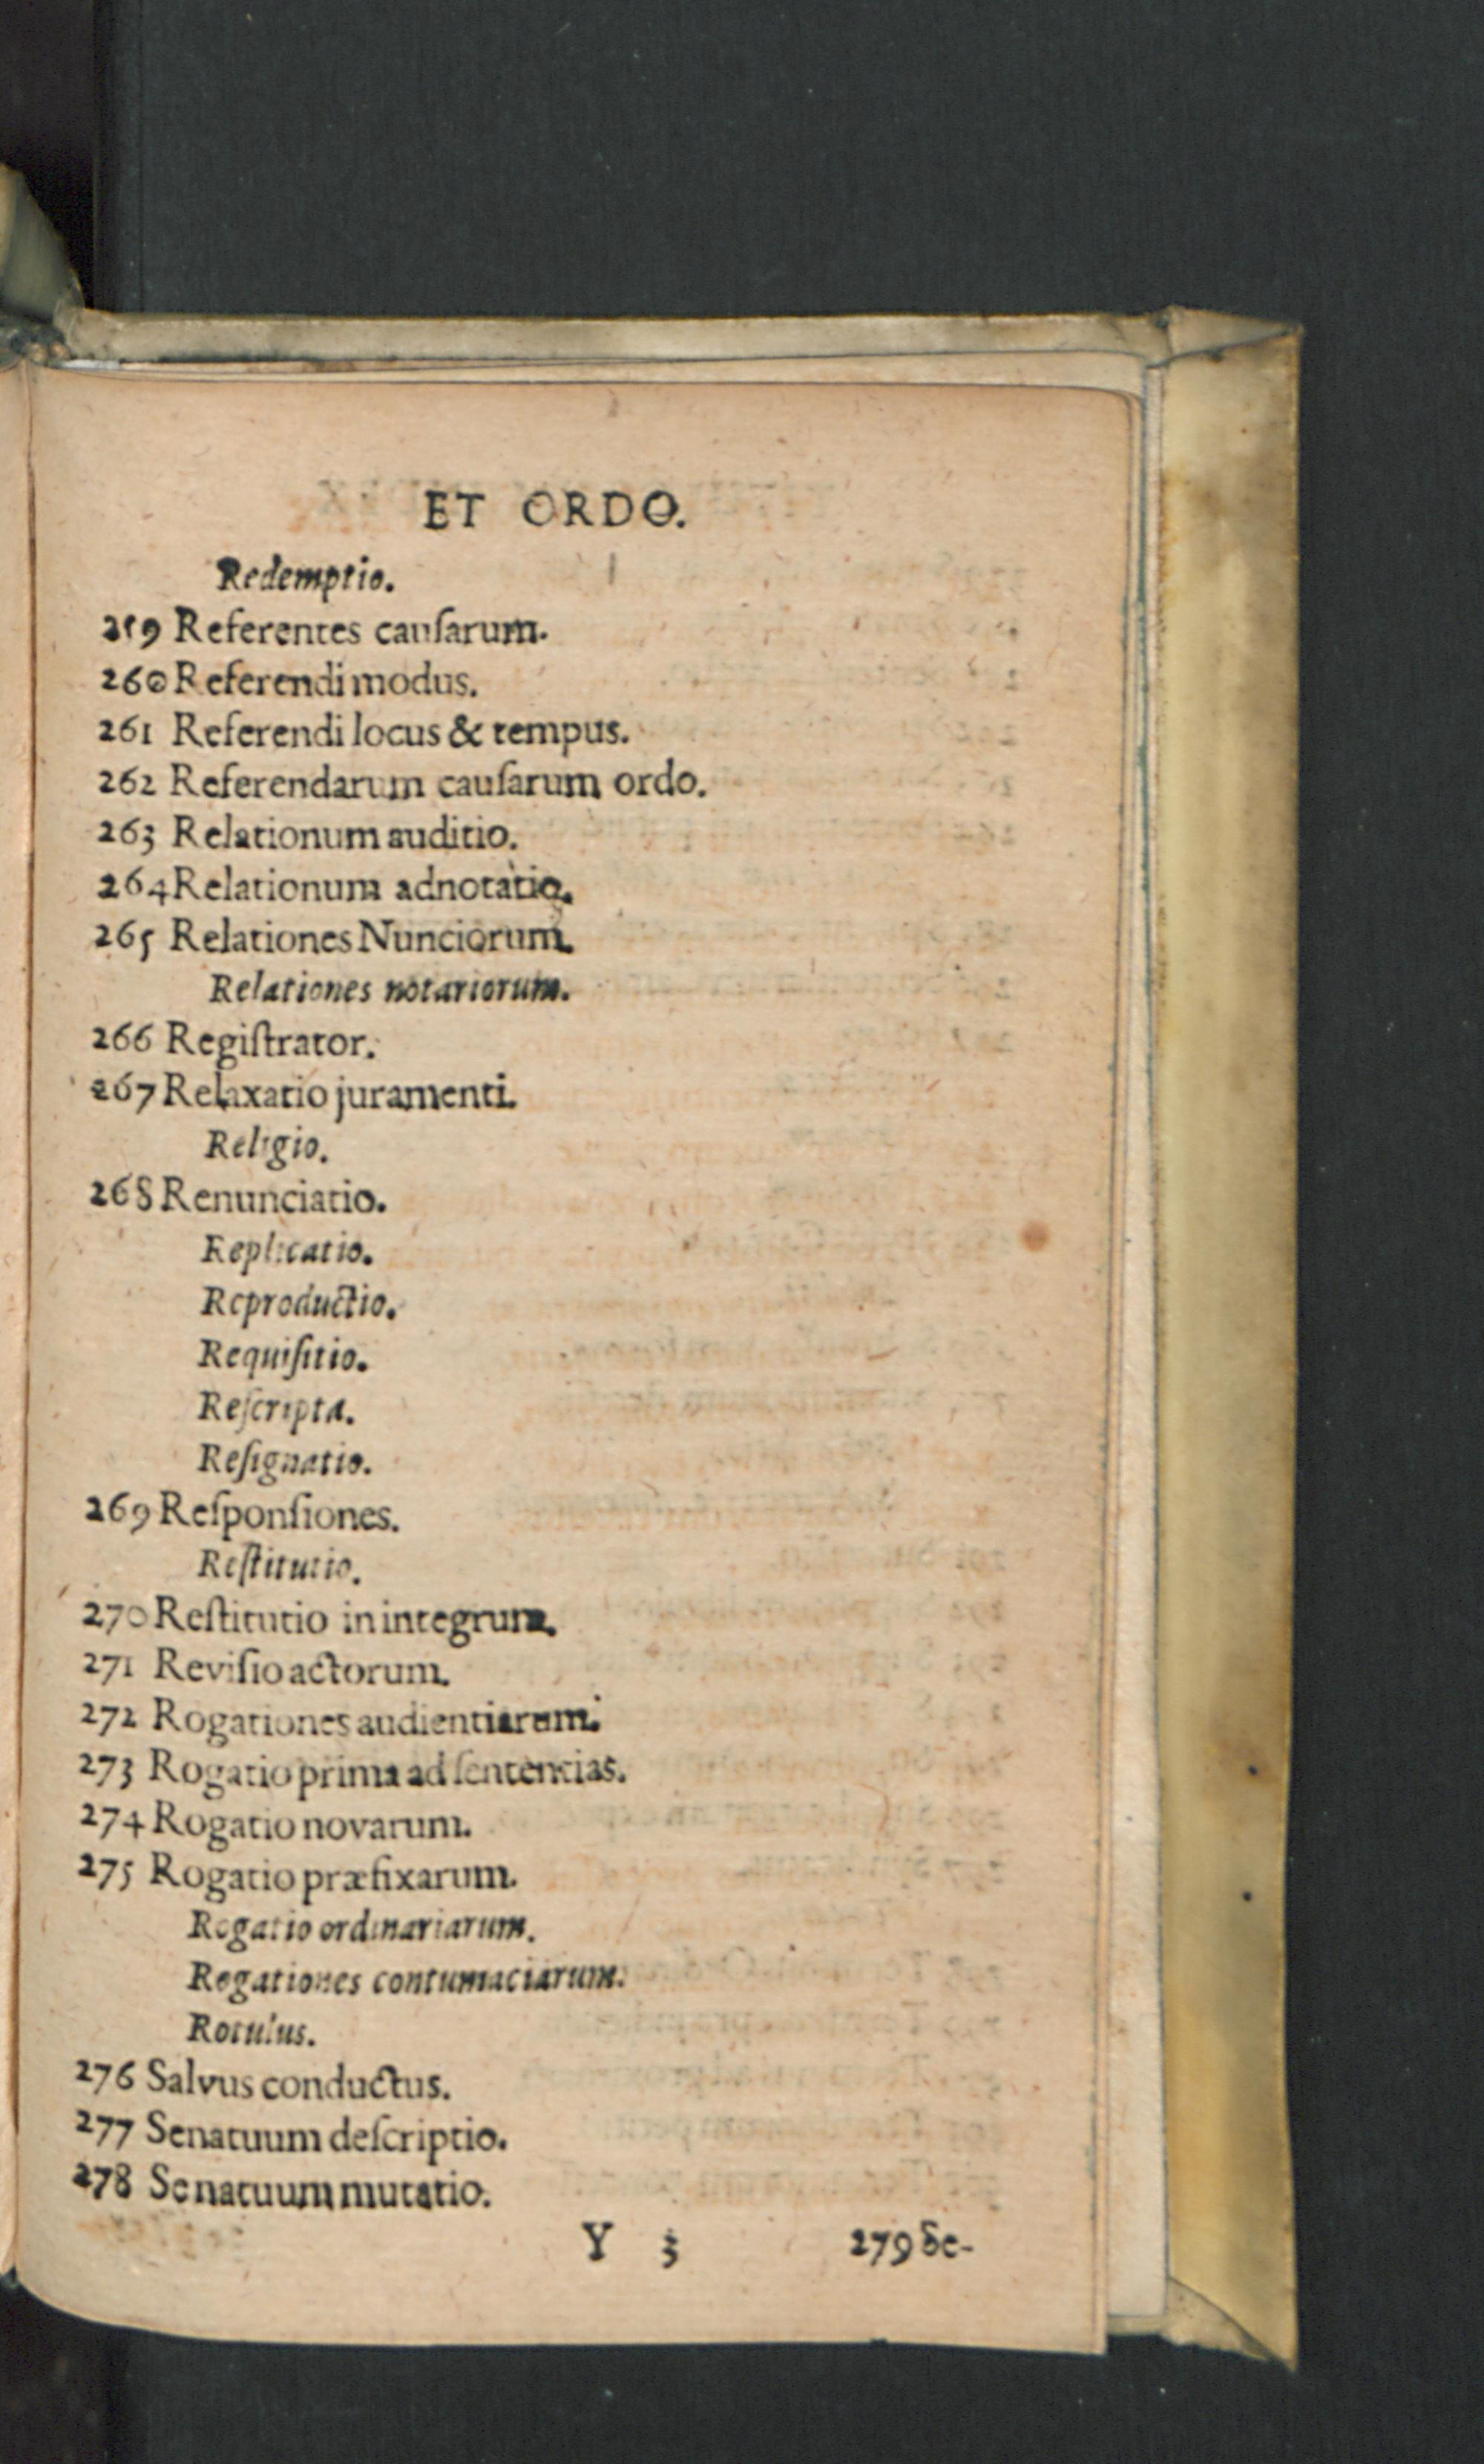 ET ORDO.
Redemptio.
259 Referentes cauſarum.
260 Referendi modus.
261 Referendi locus & tempus.
262 Referendarum cauſarum ordo.
263 Relationum auditio.
264 Relationum adnotatio.
265 Relationes Nunciorum.
Relationes notariorum.
266 Regiſtrator.
267 Relaxatio juramenti.
Religio.
268 Renunciatio.
Replicatio.
Reproductio.
Requiſitio.
Reſcripta.
Reſignatio.
269 Reſponſiones.
Reſtitutio.
270 Reſtitutio in integrum.
271 Reviſio actorum.
272 Rogationes audientiarum.
273 Rogatio prima ad ſententias.
274 Rogatio novarum.
275 Rogatio præfixarum.
Rogatio ordinariarum.
Rogationes contumaciarum.
Rotulus.
276 Salvus conductus.
277 Senatuum deſcriptio.
278 Senatuum mutatio.
Y 3 279 Se-